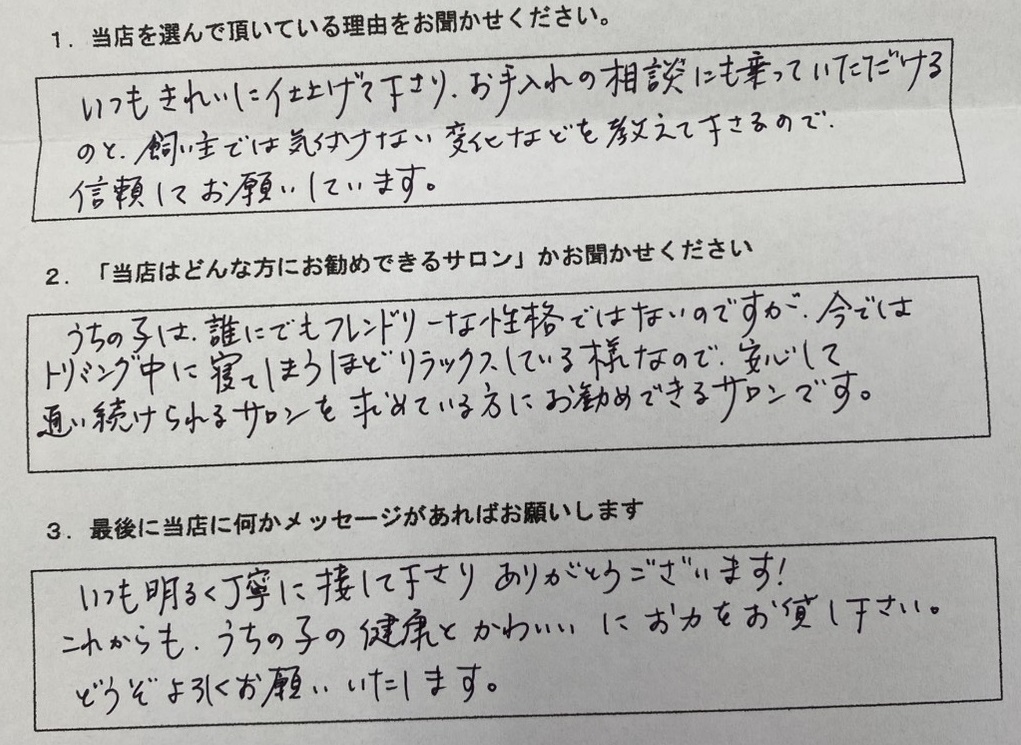 1. 当店を選んで頂いている理由をお聞かせください。
いつもきれいに仕上げて下さり、お手入れの相談にも乗っていただける
のと、飼い主では気付けない変化などを教えて下さるので、
信頼してお願いしています。
2. 「当店はどんな方にお勧めできるサロン」かお聞かせください
うちの子は、誰にでもフレンドリーな性格ではないのですが、今では
トリミング中に寝てしまうほどリラックスしている様なので、安心して
通い続けられるサロンを求めている方にお勧めできるサロンです。
3. 最後に当店に何かメッセージがあればお願いします
いつも明るく丁寧に接して下さりありがとうございます!
これからも、うちの子の健康とかわいいにお力をお貸し下さい。
どうぞよろしくお願いいたします。